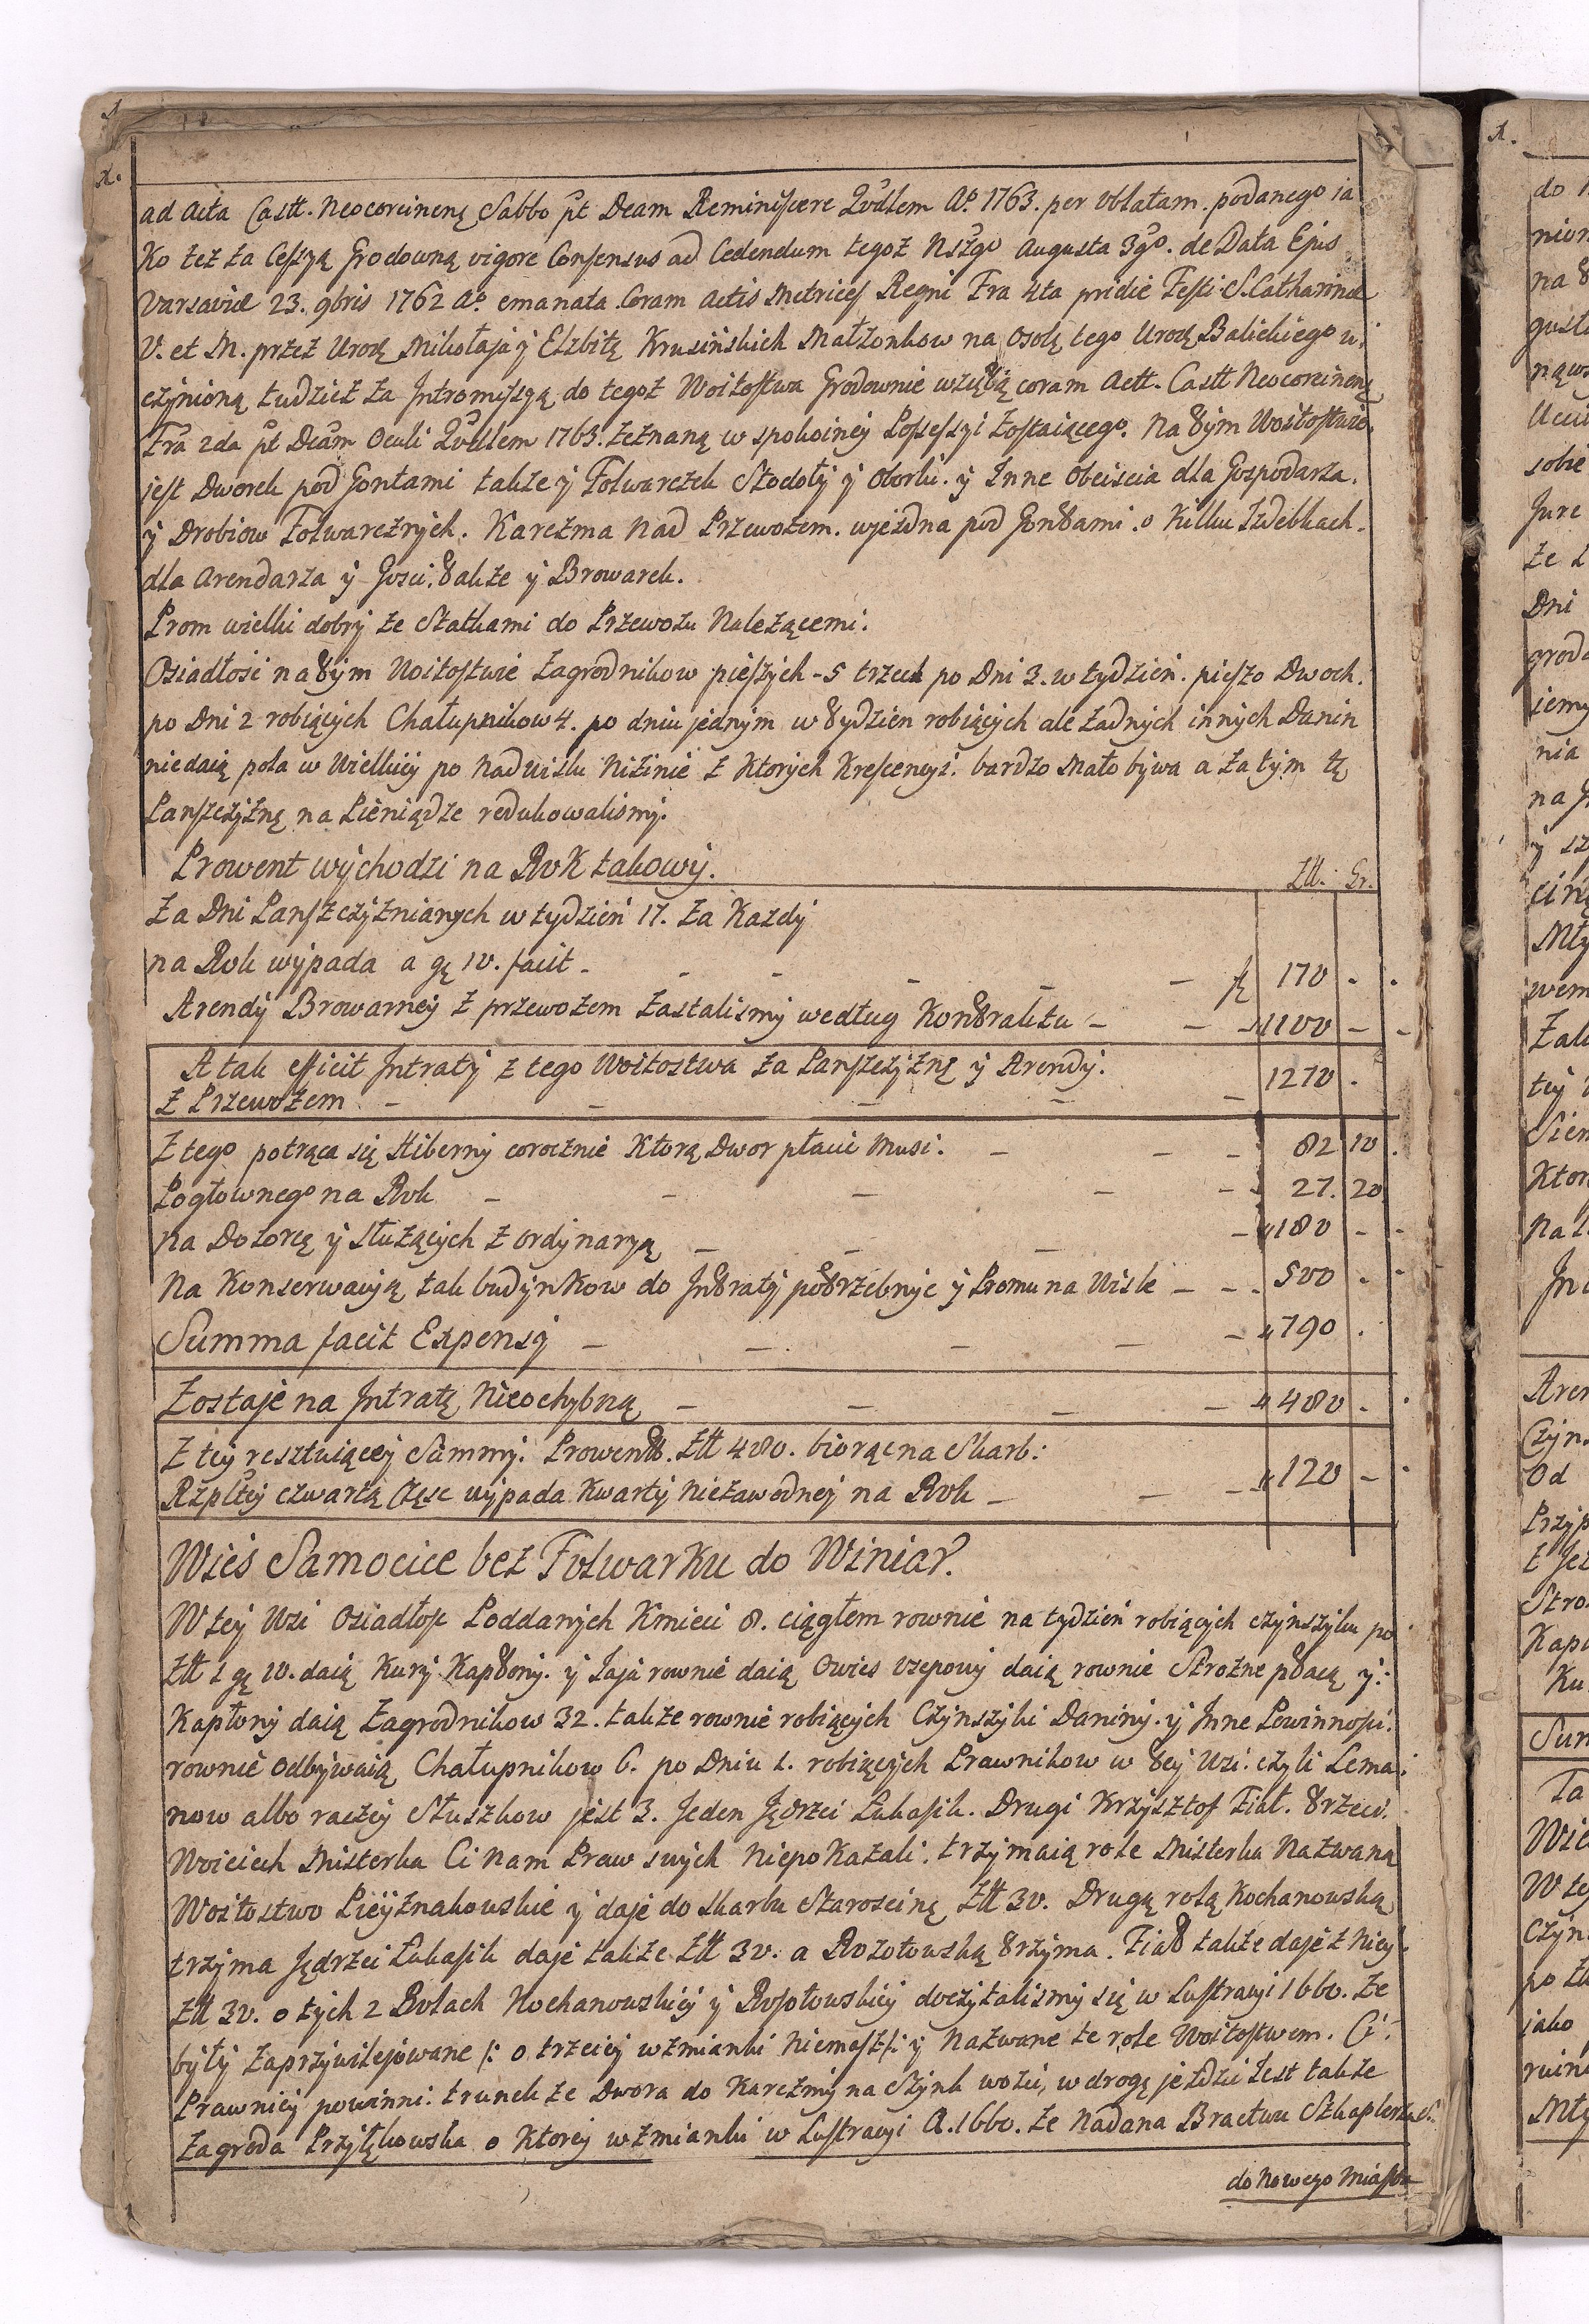 A.
ad Acta Castt. Neocorcinenę Sabbo pt Dcam Reminiscere Qudlem Aº 1763. per Oblatam. podanego ia
Ko też za Cessyą Grodowną vigore Consensus ad Cedendum tegoż Nszgo Augusta 3go. de Data Ejus
Varsaviæ 23. 9bris 1762 Aº. emanata. Coram Actis Metrices Regni Fra 4ta pridie Festi S. Catharinæ
V. et M. przez Urodz Mikołaja y Elzbitę Krusińskich Małżonkow na Osobę tego Urodz Balickiego u
czynioną tudziez za Jntromissyą do tegoż Woitostwa Grodownie wziętą coram Actt. Castt Neocorcinenę
Fra 2da pt Dcam Oculi Qudlem 1763. zeznaną w spokoiney Possessyi Zostaiącego. Na tym Woitostwie
jest Dworek pod Gontami także y Folwarczek Stodoły y Oborki. y Jnne Obeiscia dla Gospodarza.
y Drobiow Folwarcznych. Karczma Nad Przewozem. wjezdna pod Gontami. o Kilku Jzdebkach.
dla Arendarza y Gosci. takze y Browarek.
Prom wielki dobry ze Statkami do Przewozu Należącemi.
Osiadłosi na tym Woitostwie Zagrodnikow pieszych - 5 trzech po Dni 3. w tydzień. pieszo Dwoch.
po Dni 2 robiących Chałupnikow 4. po dniu jednym w tydzien robiących ale żadnych innych Danin
niedaią pola w Wielkiey po Nadwislu Niżinie z Ktorych Krescencyi. bardzo Mało bywa a zatym tę
Panszczyznę na Pieniądze redukowalismy.
Prowent wychodzi na Rok takowy.
Złł. Gr.
Za Dni Panszczyznianych w tydzień 17. za Kazdy
na Rok wypada a gę 10. facit - - - - - - fł 170 - .
Arendy Browarney z przewozem zastalismy według Kontraktu - - - 1100 - -
A tak efficit Jntraty z tego Woitostwa za Panszczyznę y Arendy.
z Przewozem - - - - - 1270 .
Z tego potrąca się Hiberny corocznie Ktorą Dwor płacic Musi. - - - 82 10 .
Pogłownego na Rok - - - - - 27. 20
na Dozorcę y służących z Ordynaryą - - - - 180 - -
Na Konserwacyą tak budynkow do Jntraty potrzebnyc y Promu na Wisle - - . 500 . -
Summa facit Expensy - - - - - 790 .
Zostaje na Jntratę Nieochybną - - - - 480 - .
Z tey resztuiącey Summy. Prowent. Złł 480. biorąc na Skarb:
Rzpltey czwartą Częsc wypada Kwarty Niezawodney na Rok - - - 120 - .
Wies Samocice bez Folwarku do Winiar.
W tey Wsi Osiadłosc Poddanych Kmieci 8. ciągłem rownie na tydzień robiących czynszyku po
Złł 1 gę 10. daią Kury Kapłony. y Jaja rownie daią Owies Osepowy daią rownie Strozne płacą y:
Kapłony daią Zagrodnikow 32. także rownie robiących Czynszyki Daniny. y Jnne Powinnosci.
rownie Odbywaią Chałupnikow 6. po Dniu 1. robiących Prawnikow w tey Wsi. czyli Lema:
now albo raczey Służkow jest 3. Jeden Jędrzei Łukasik. Drugi Krzysztof Fiał. trzeci.
Woiciech Misterka Ci Nam Praw swych Niepokazali. trzymaią role Misterka Nazwaną
Woitostwo Pieyznakowskie y daje do Skarbu Staroscinę Złł 30. Drugą rolą Kochanowską
trzyma Jędrzei Łukasik daje także. Złł 30. a Rozotowską trzyma. Fiał także daje z Niey
Złł 30. o tych 2 Rolach Kochanowskiey y Rosołowskiey doczytalismy się w Lustracyi 1660. Ze
były Zaprzywilejowane /: o trzeciey wzmianki Niemasz /: y Nazwane te role Woitostwem. Ci.
Prawnicy powinni. trunek ze Dwora do Karczmy na Szynk wozić, w drogę jeździć Jest także
Zagroda Przyłękowska o Ktorey wzmianki w Lustracyi A. 1660. Ze Nadana Bractwu Szkaplerza S.
do Nowego Miasta